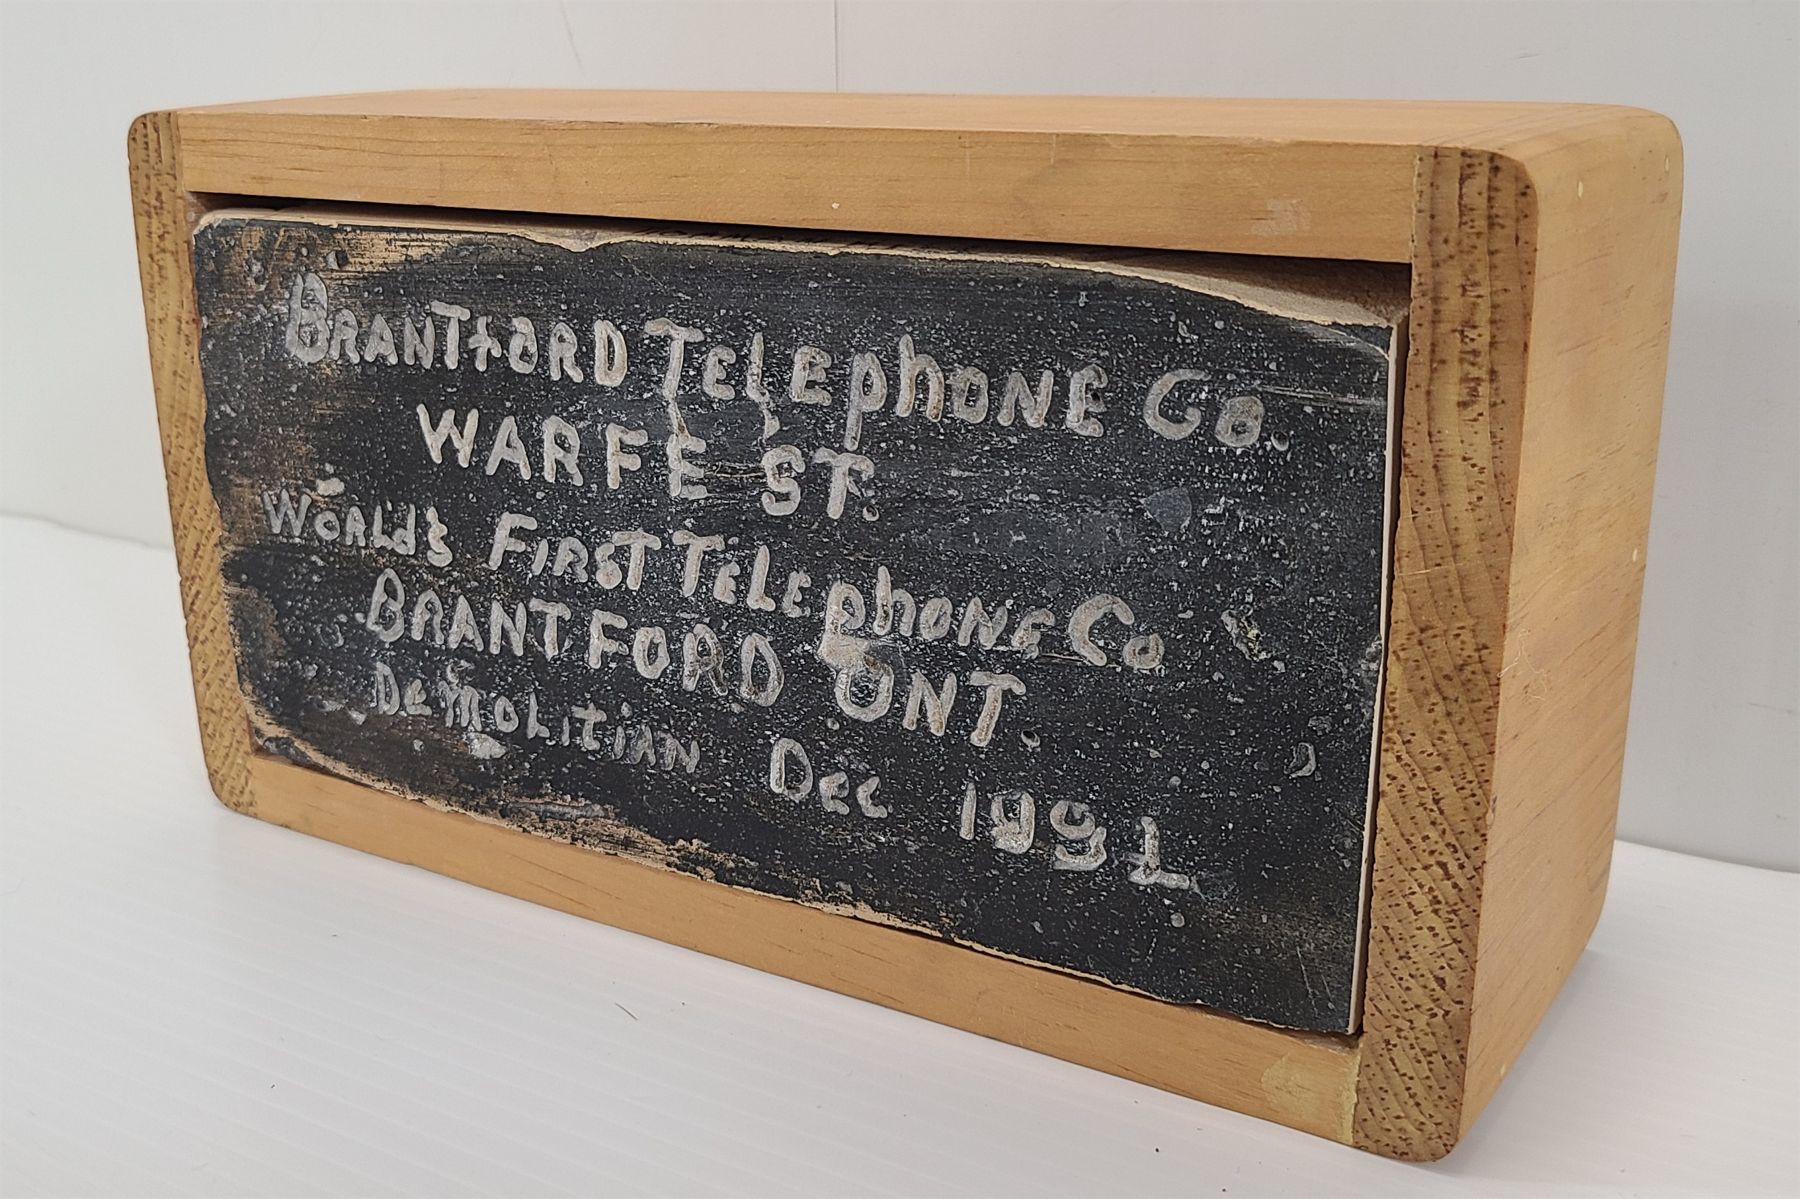 BRANTfORD TELEphONE Co.
WARFE ST.
WORLd's FIRST TELEphONE Co
BRANTFORD ONT.
DEMOLITIAN Dec 1991